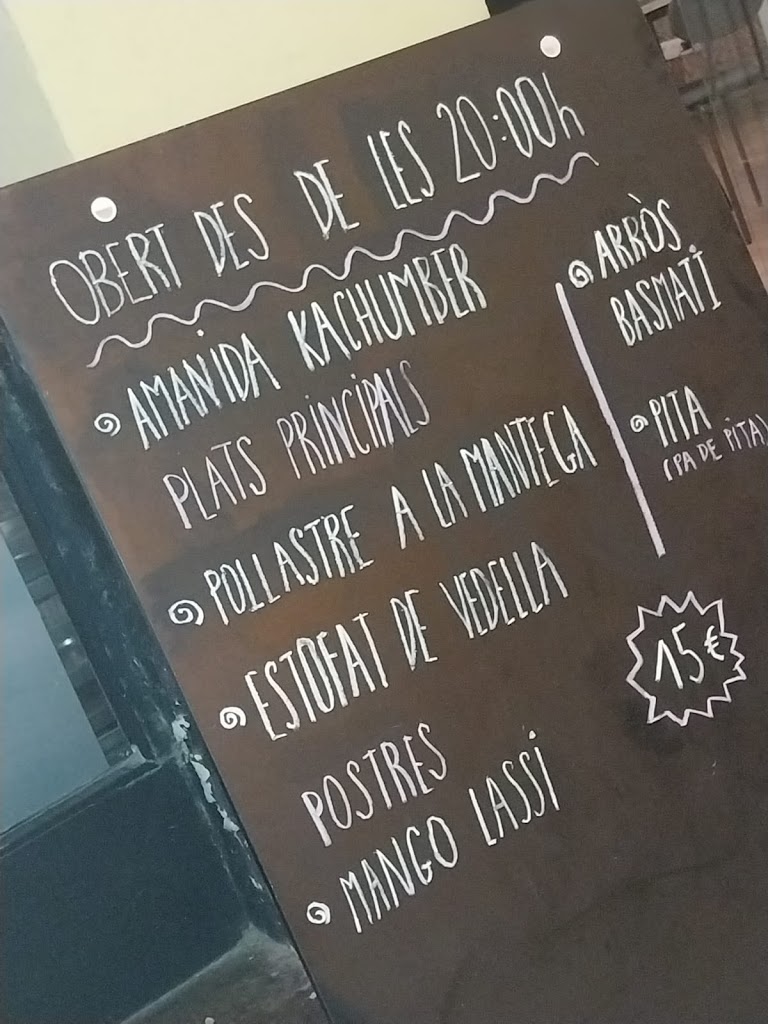 OBERT DES DE LES 20:00h
AMANIDA KACHUMBER
PLATS PRINCIPALS
POLLASTRE A LA MANTEGA
ESTOFAT DE VEDELLA
POSTRES
MANGO LASSI
ARRÒS
BASMATI
PITA
(PA DE PITA)
15€